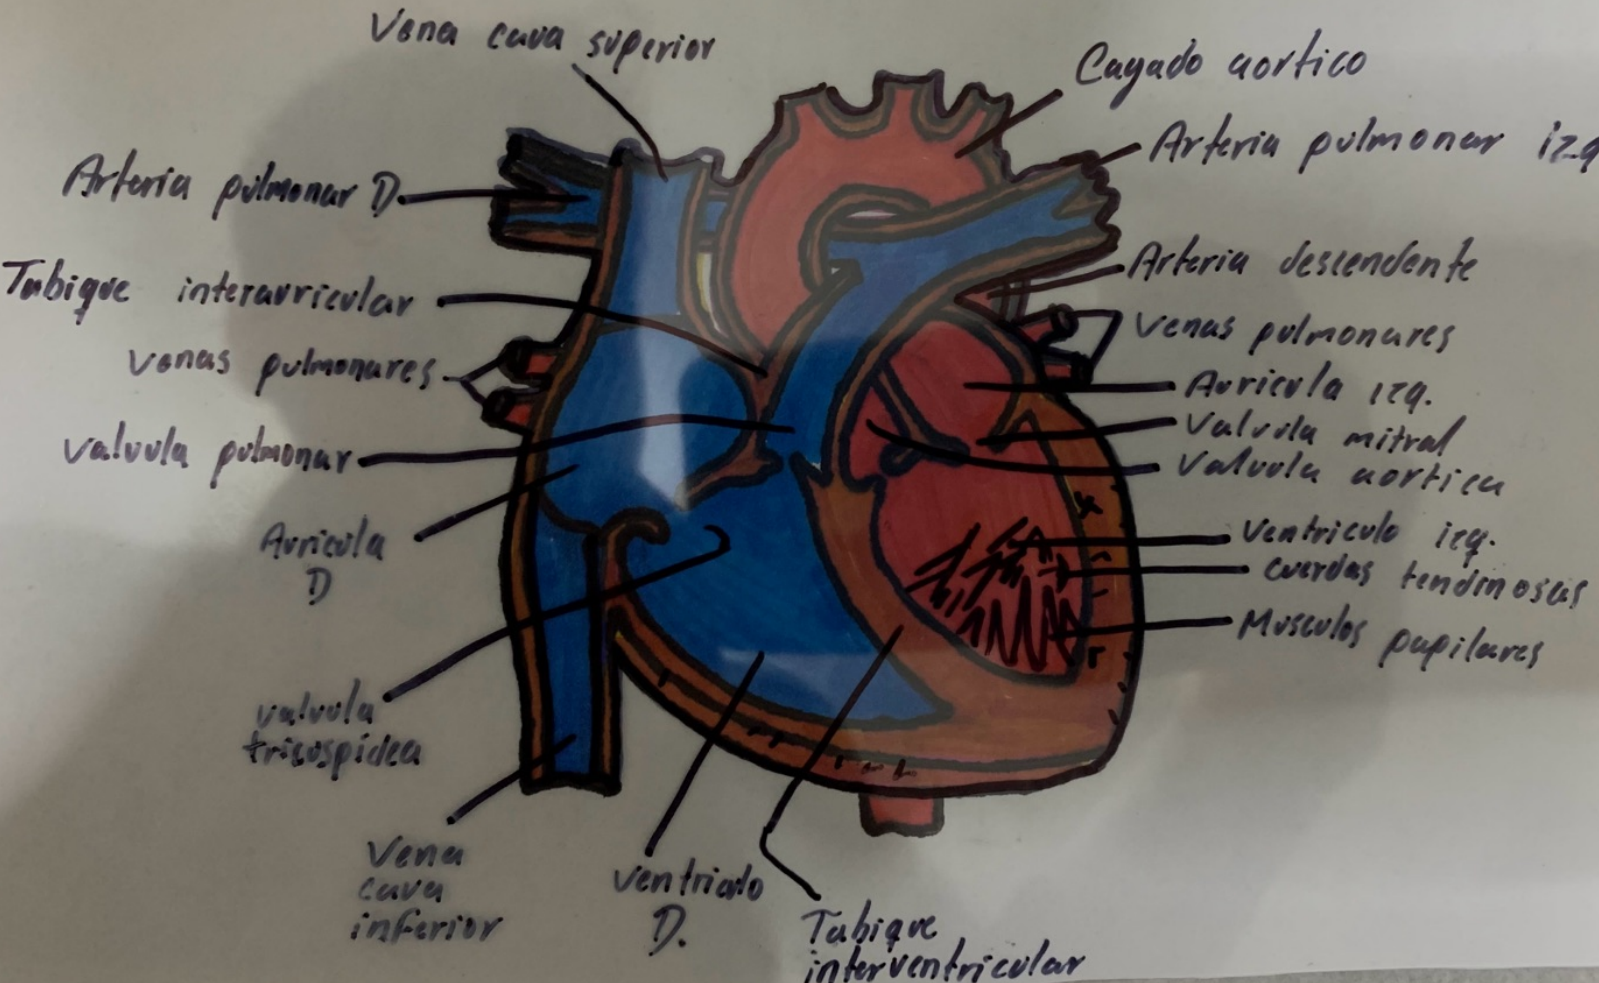 Vena cava superior
Cayado aortico
Arteria pulmonar izq
Arteria pulmonar D.
Arteria descendente
Tabique interauricular
Venas pulmonares
Venas pulmonares
Auricula izq.
Valvula mitral
Valvula aortica
valvula pulmonar
Ventriculo izq.
Auricula
D
cuerdas tendinosas
Musculos papilares
valvula
tricuspidea
Vena
cava
inferior
ventriculo
D.
Tabique
interventricular